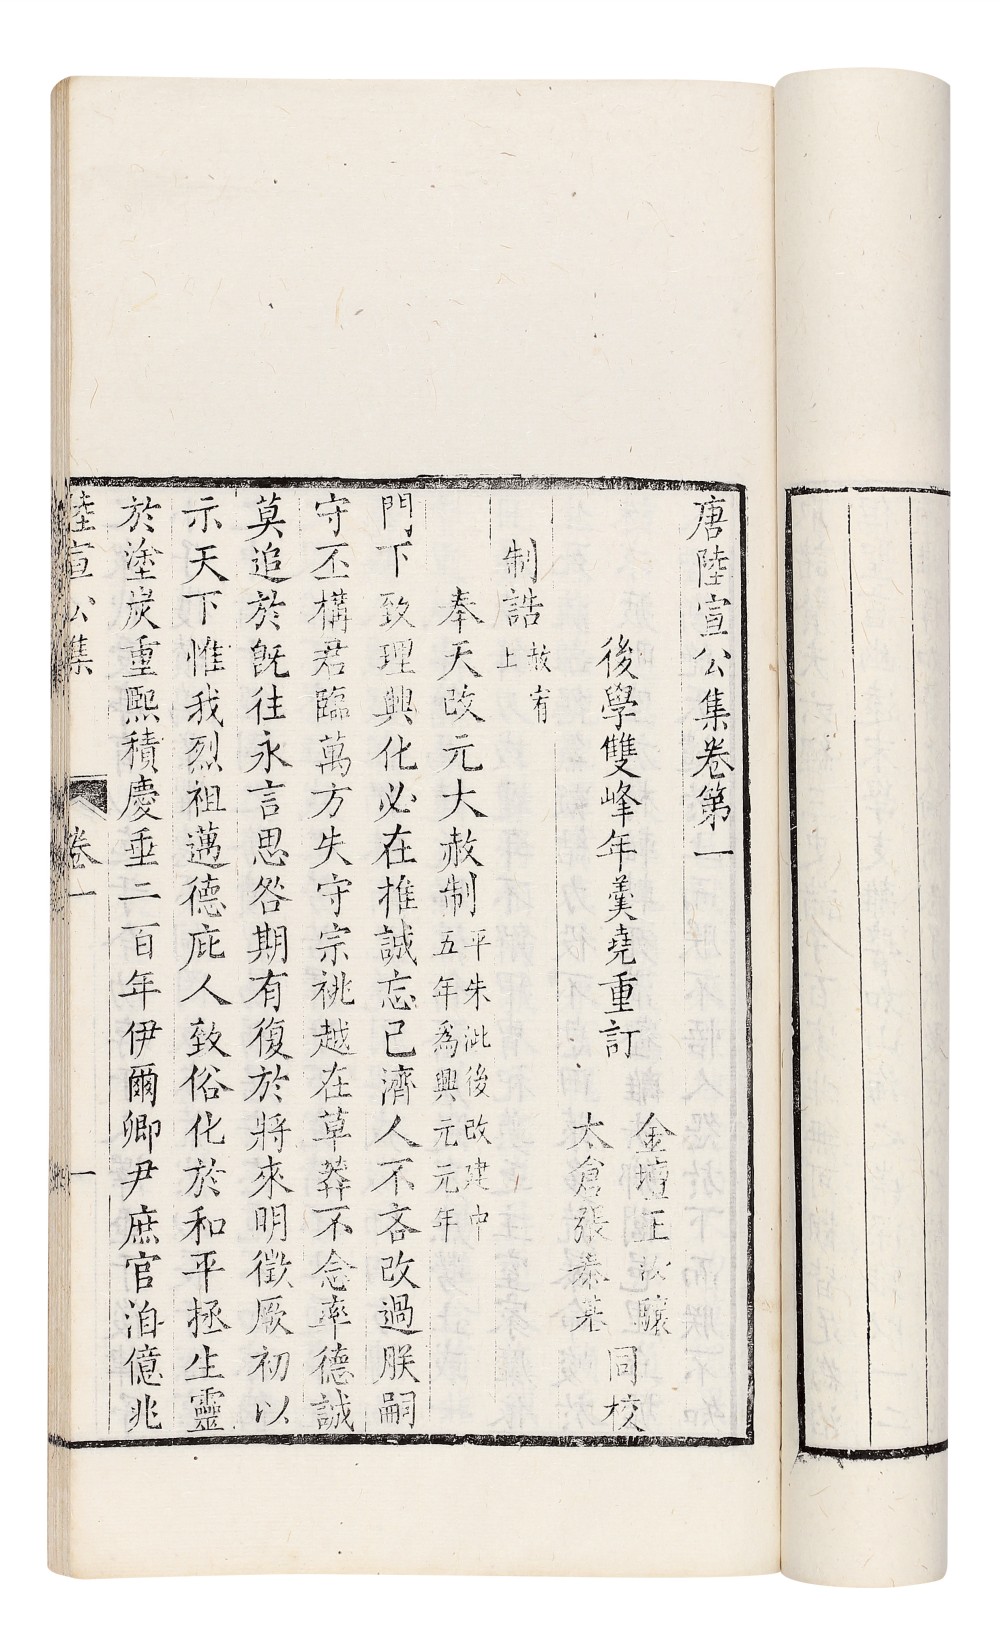 唐陸宣公集卷第一
後學雙峰年羹堯重訂
金壇王汝驤
太倉張泰基
同校
制誥
赦宥
上
奉天改元大赦制
平朱泚後改建中
五年為興元元年
門下致理興化必在推誠忘已濟人不吝改過朕嗣
守丕構君臨萬方失守宗祧越在草莽不念率德誠
莫追於既往永言思咎期有復於將來明徵厥初以
示天下惟我烈祖邁德庇人致俗化於和平拯生靈
於塗炭重熙積慶垂二百年伊爾卿尹庶官洎億兆
陸宣公集
卷一
一